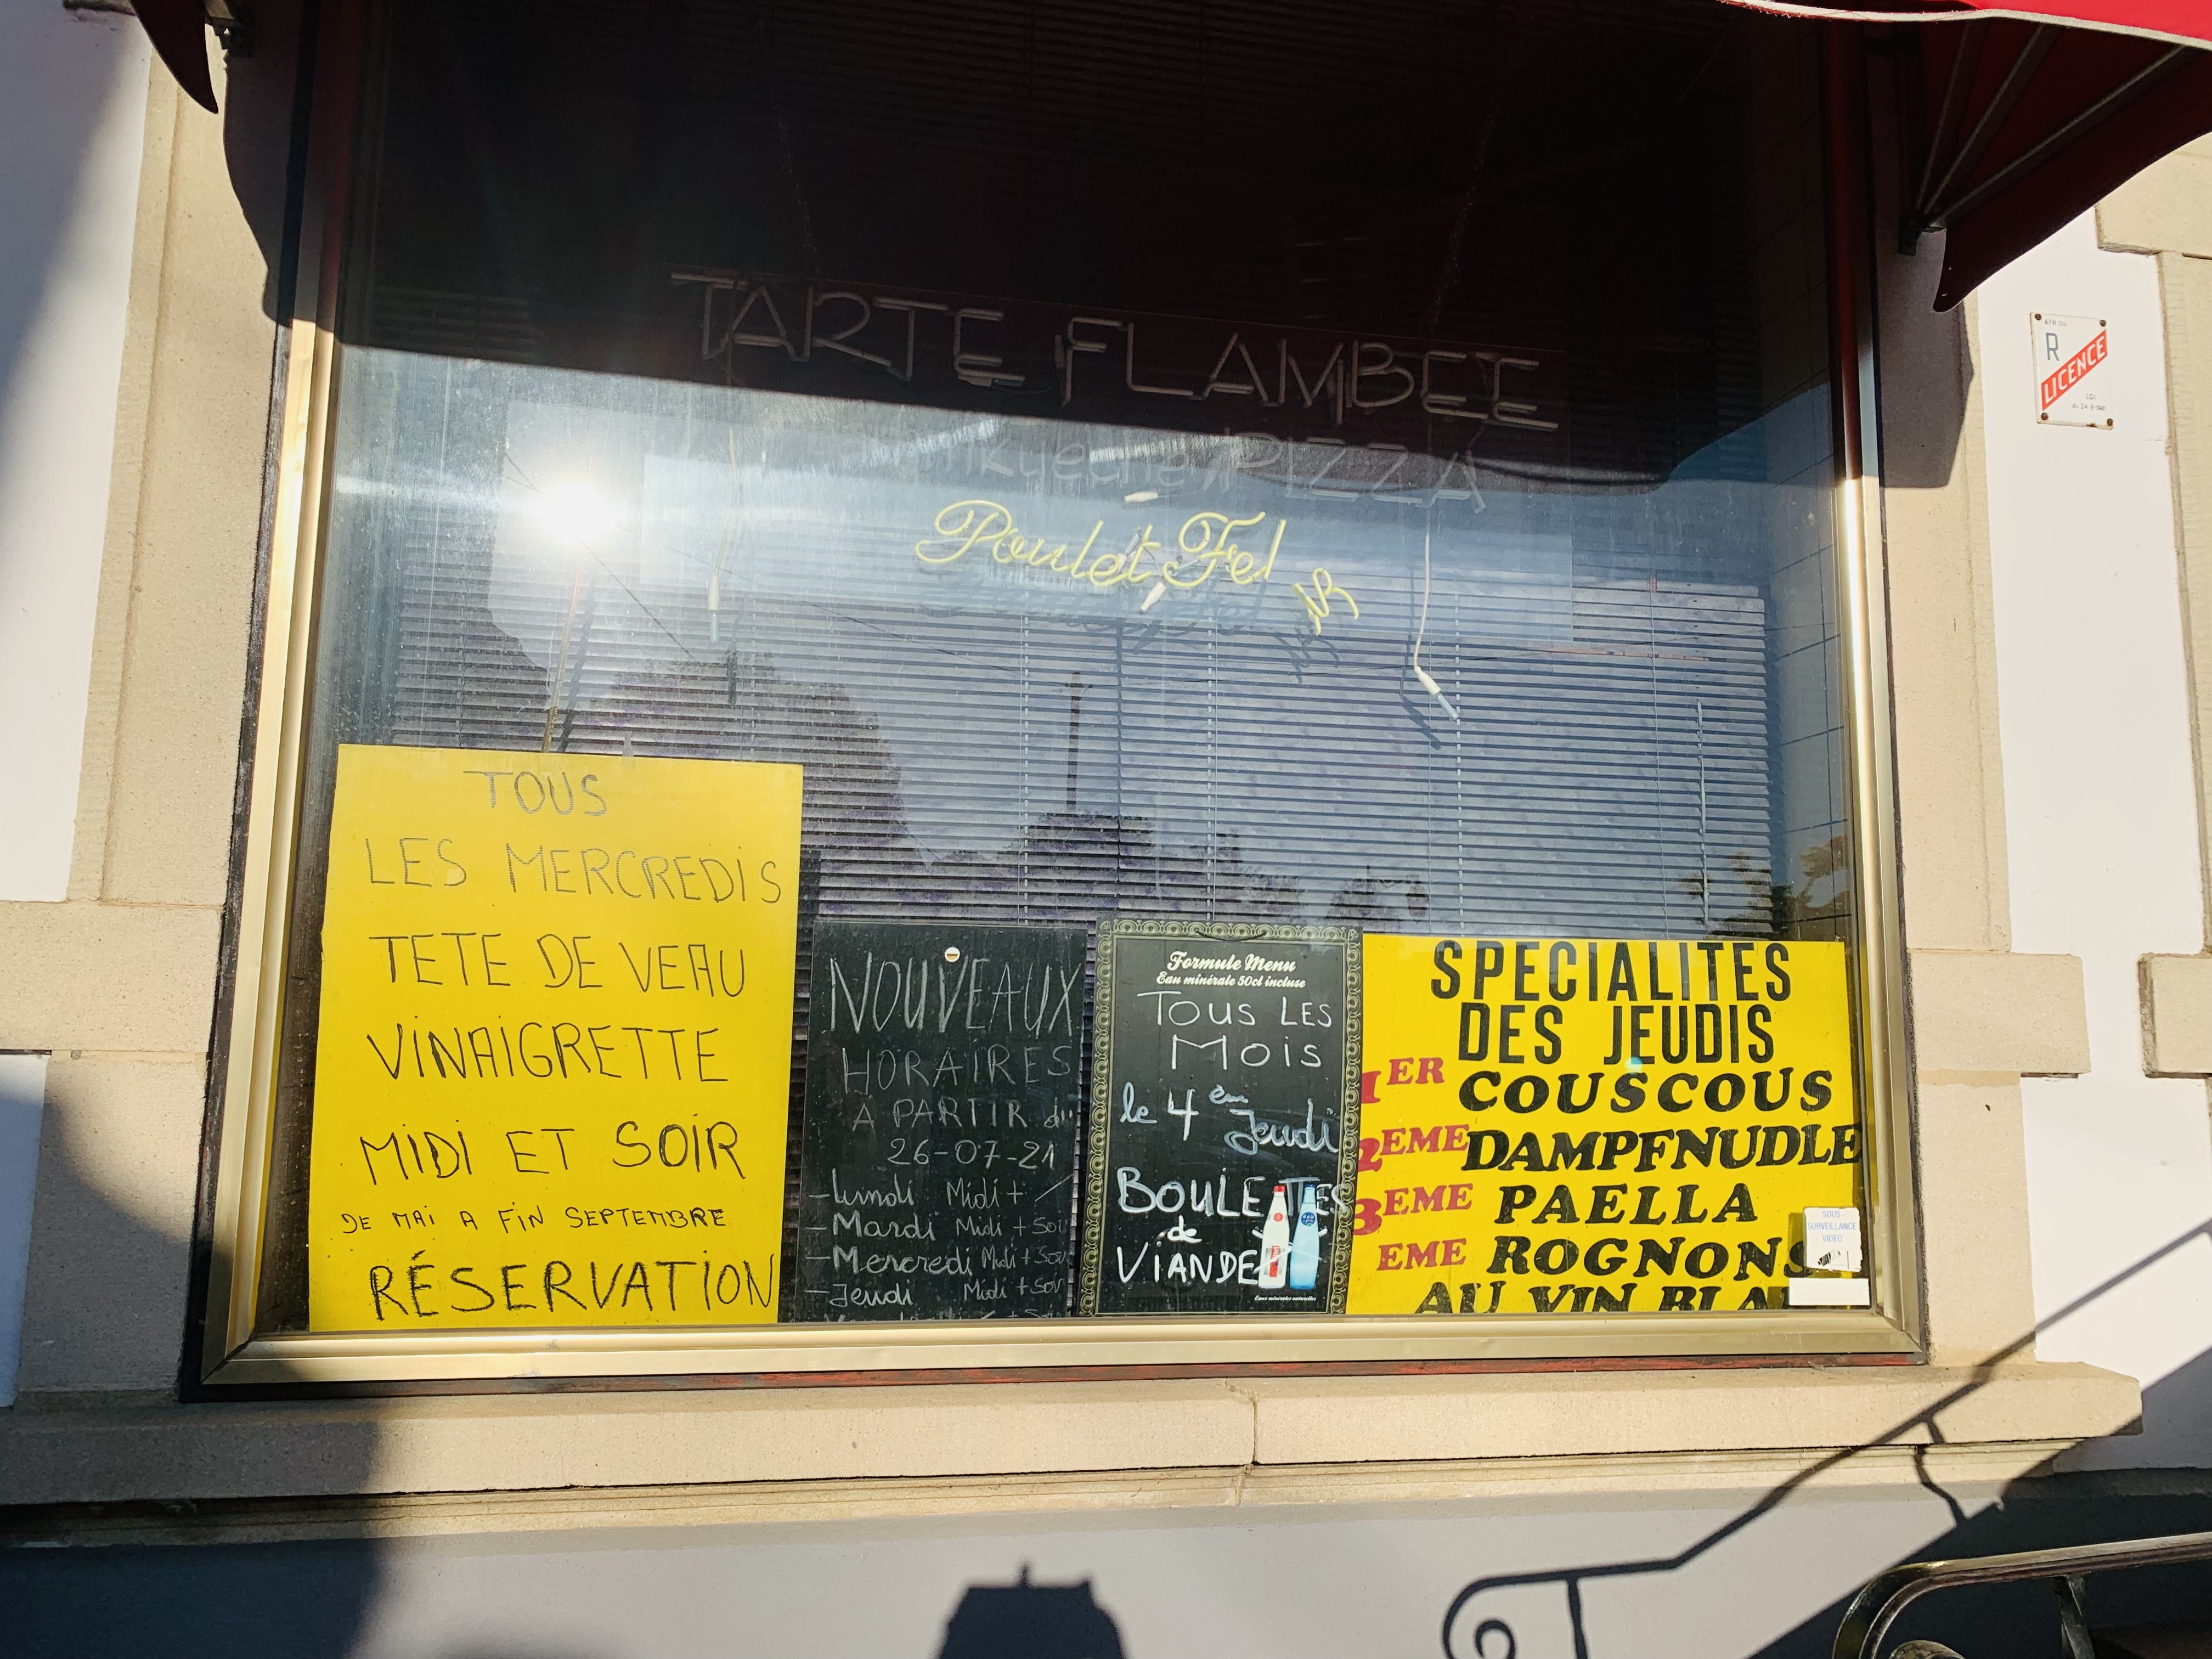 TARTE FLAMBEE
PIZZA
Poulet Fel
TOUS
LES MERCREDIS
TETE DE VEAU
VINAIGRETTE
MIDI ET SOIR
DE MAI A FIN SEPTEMBRE
RÉSERVATION
NOUVEAUX
HORAIRES
A PARTIR du
26-07-21
-Lundi Midi +
-Mardi Midi + Soir
-Mercredi Midi + Soir
-Jeudi Midi + Soir
Formule Menu
Eau minérale 50cl incluse
TOUS LES
MOIS
le 4 èm
Jeudi
BOULETTES
de
VIANDE
SPECIALITES
DES JEUDIS
1ER COUSCOUS
2EME DAMPFNUDLE
3EME PAELLA
EME ROGNONS
AU VIN BLA
SOUS
SURVEILLANCE
VIDEO
R
LICENCE
LOI
du 24-9-1941